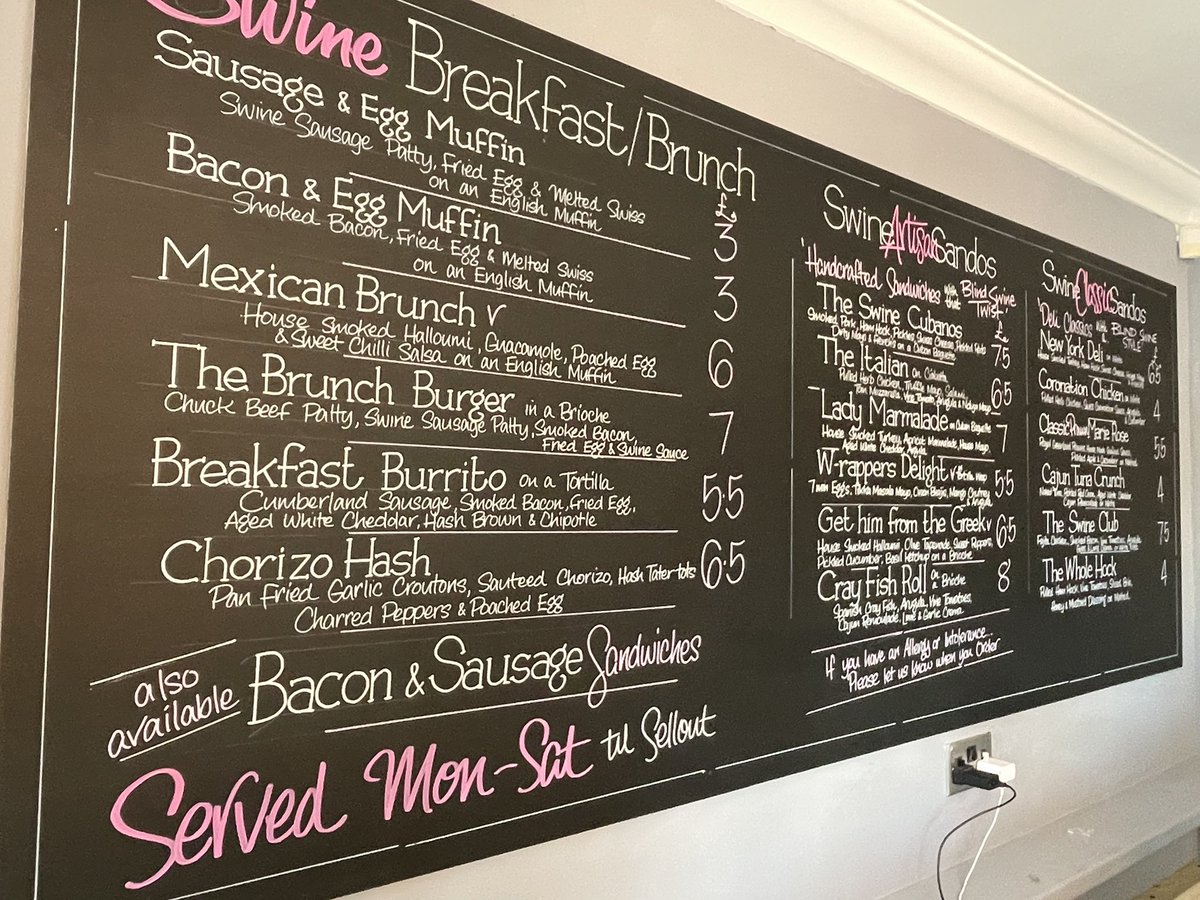 Swine Breakfast/Brunch
£
Sausage & Egg Muffin 3
Swine Sausage Patty, Fried Egg & Melted Swiss
on an English Muffin
Bacon & Egg Muffin 3
Smoked Bacon, Fried Egg & Melted Swiss
on an English Muffin
Mexican Brunch V 6
House Smoked Halloumi, Guacamole, Poached Egg
& Sweet Chilli Salsa on an English Muffin
The Brunch Burger in a Brioche 7
Chuck Beef Patty, Swine Sausage Patty, Smoked Bacon,
Fried Egg & Swine Sauce
Breakfast Burrito on a Tortilla 5.5
Cumberland Sausage, Smoked Bacon, Fried Egg,
Aged White Cheddar, Hash Brown & Chipotle
Chorizo Hash 6.5
Pan Fried Garlic Croutons, Sauteed Chorizo, Hash Tater tots
Charred Peppers & Poached Egg
also available Bacon & Sausage Sandwiches
Served Mon-Sat til Sellout
Swine Artisan Sandos
'Handcrafted Sandwiches with that Blind Swine Twist'
£
The Swine Cubanos 7.5
Smoked Pork, Ham Hock, Pickles, Swiss Cheese,
on a Cuban Baguette
The Italian on Ciabatta 6.5
Pulled Herb Chicken, Truffle Mayo, Salami,
Mozzarella, Vine Tomato, Arugula & Nduja Mayo
Lady Marmalade on Cuban Baguette 7
House Smoked Turkey, Apricot Marmalade, House Mayo,
Aged White Cheddar, Arugula
W-rappers Delight V 5.5
7 min Eggs, Tikka Masala Mayo, Onion Bhajis, Mango Chutney
& Arugula
Get him from the Greek V 6.5
House Smoked Halloumi, Olive Tapenade, Sweet Peppers,
Pickled Cucumber, Basil Ketchup on a Brioche
Cray Fish Roll on a Brioche 8
Spanish Cray Fish, Arugula, Vine Tomatoes,
Cajun Remoulade, Lime & Garlic Crema
If you have an Allergy or Intolerance...
Please let us know when you Order
Swine Classic Sandos
'Deli Classics with a BLIND SWINE STYLE'
£
New York Deli 6.5
Coronation Chicken 4
Classic Prawn Marie Rose 5.5
Cajun Tuna Crunch 4
The Swine Club 7.5
The Whole Hock 4